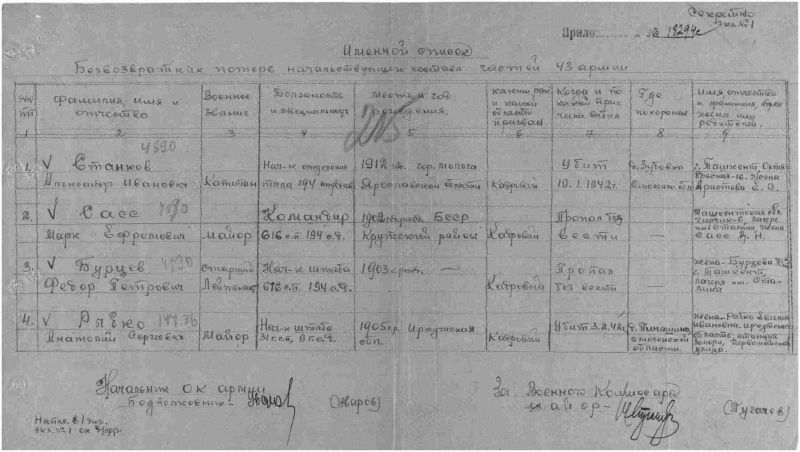 Секретно
экз. №1
Прило: № 18294с
Именной список
Безвозвратных потерь начальствующего состава частей 43 армии
№№ пп
Фамилия, имя и отчество
Военное звание
Должность и специальность
Место и год рождения
Каким РВК и какой области призван
Когда и по какой причине выбыл
Где похоронен
Имя, отчество и фамилия, адрес жены или родителей.
1 2 3 4 5 6 7 8 9
4390
1. V Станков
Александр Иванович
Капитан
Нач-к отделения
штаба 194
1912 г. гор. Молога
Ярославской области
Кадровый
Убит
19.1.1942г.
д. Зубовка
Смоленск. обл.
г. Ташкент Октябрьская-16. Жена
Аристова
2. V Сасс 4390
Марк Ефромович
Майор
Командир
616 с.п. 194 с.д.
1902 БССР
Крупский район
Кадровый
Пропал без
вести
Ташкентская обл.
Чирчик-6, лагерь
им. Сталина, жена
Сасс
3. V Бурцев 4390
Федор Петрович
Старший
Лейтенант
Нач-к штаба
616 с.п. 194 с.д.
1903 г. рожд. —
Кадровый
Пропал
без вести
—
жена-Бурцева
г. Ташкент,
лагеря им. Сталина
4. V Рычко
Анатолий Сергеевич
Майор
Нач-к штаба
31 с.п. 9 г.с.д.
1905 г.р. Иркутская
обл.
Кадровый
Убит 3.2.42г.
Смоленской
области.
жена-
Ивановна. Иркутская
область, станция
Залари, Первомайская
улица.
Начальник ОК армии
Подполковник-
(Уваров)
За Военного Комиссара
майор-
(Пугачев)
Напеч. в 1 экз.
Экз. №1 ок